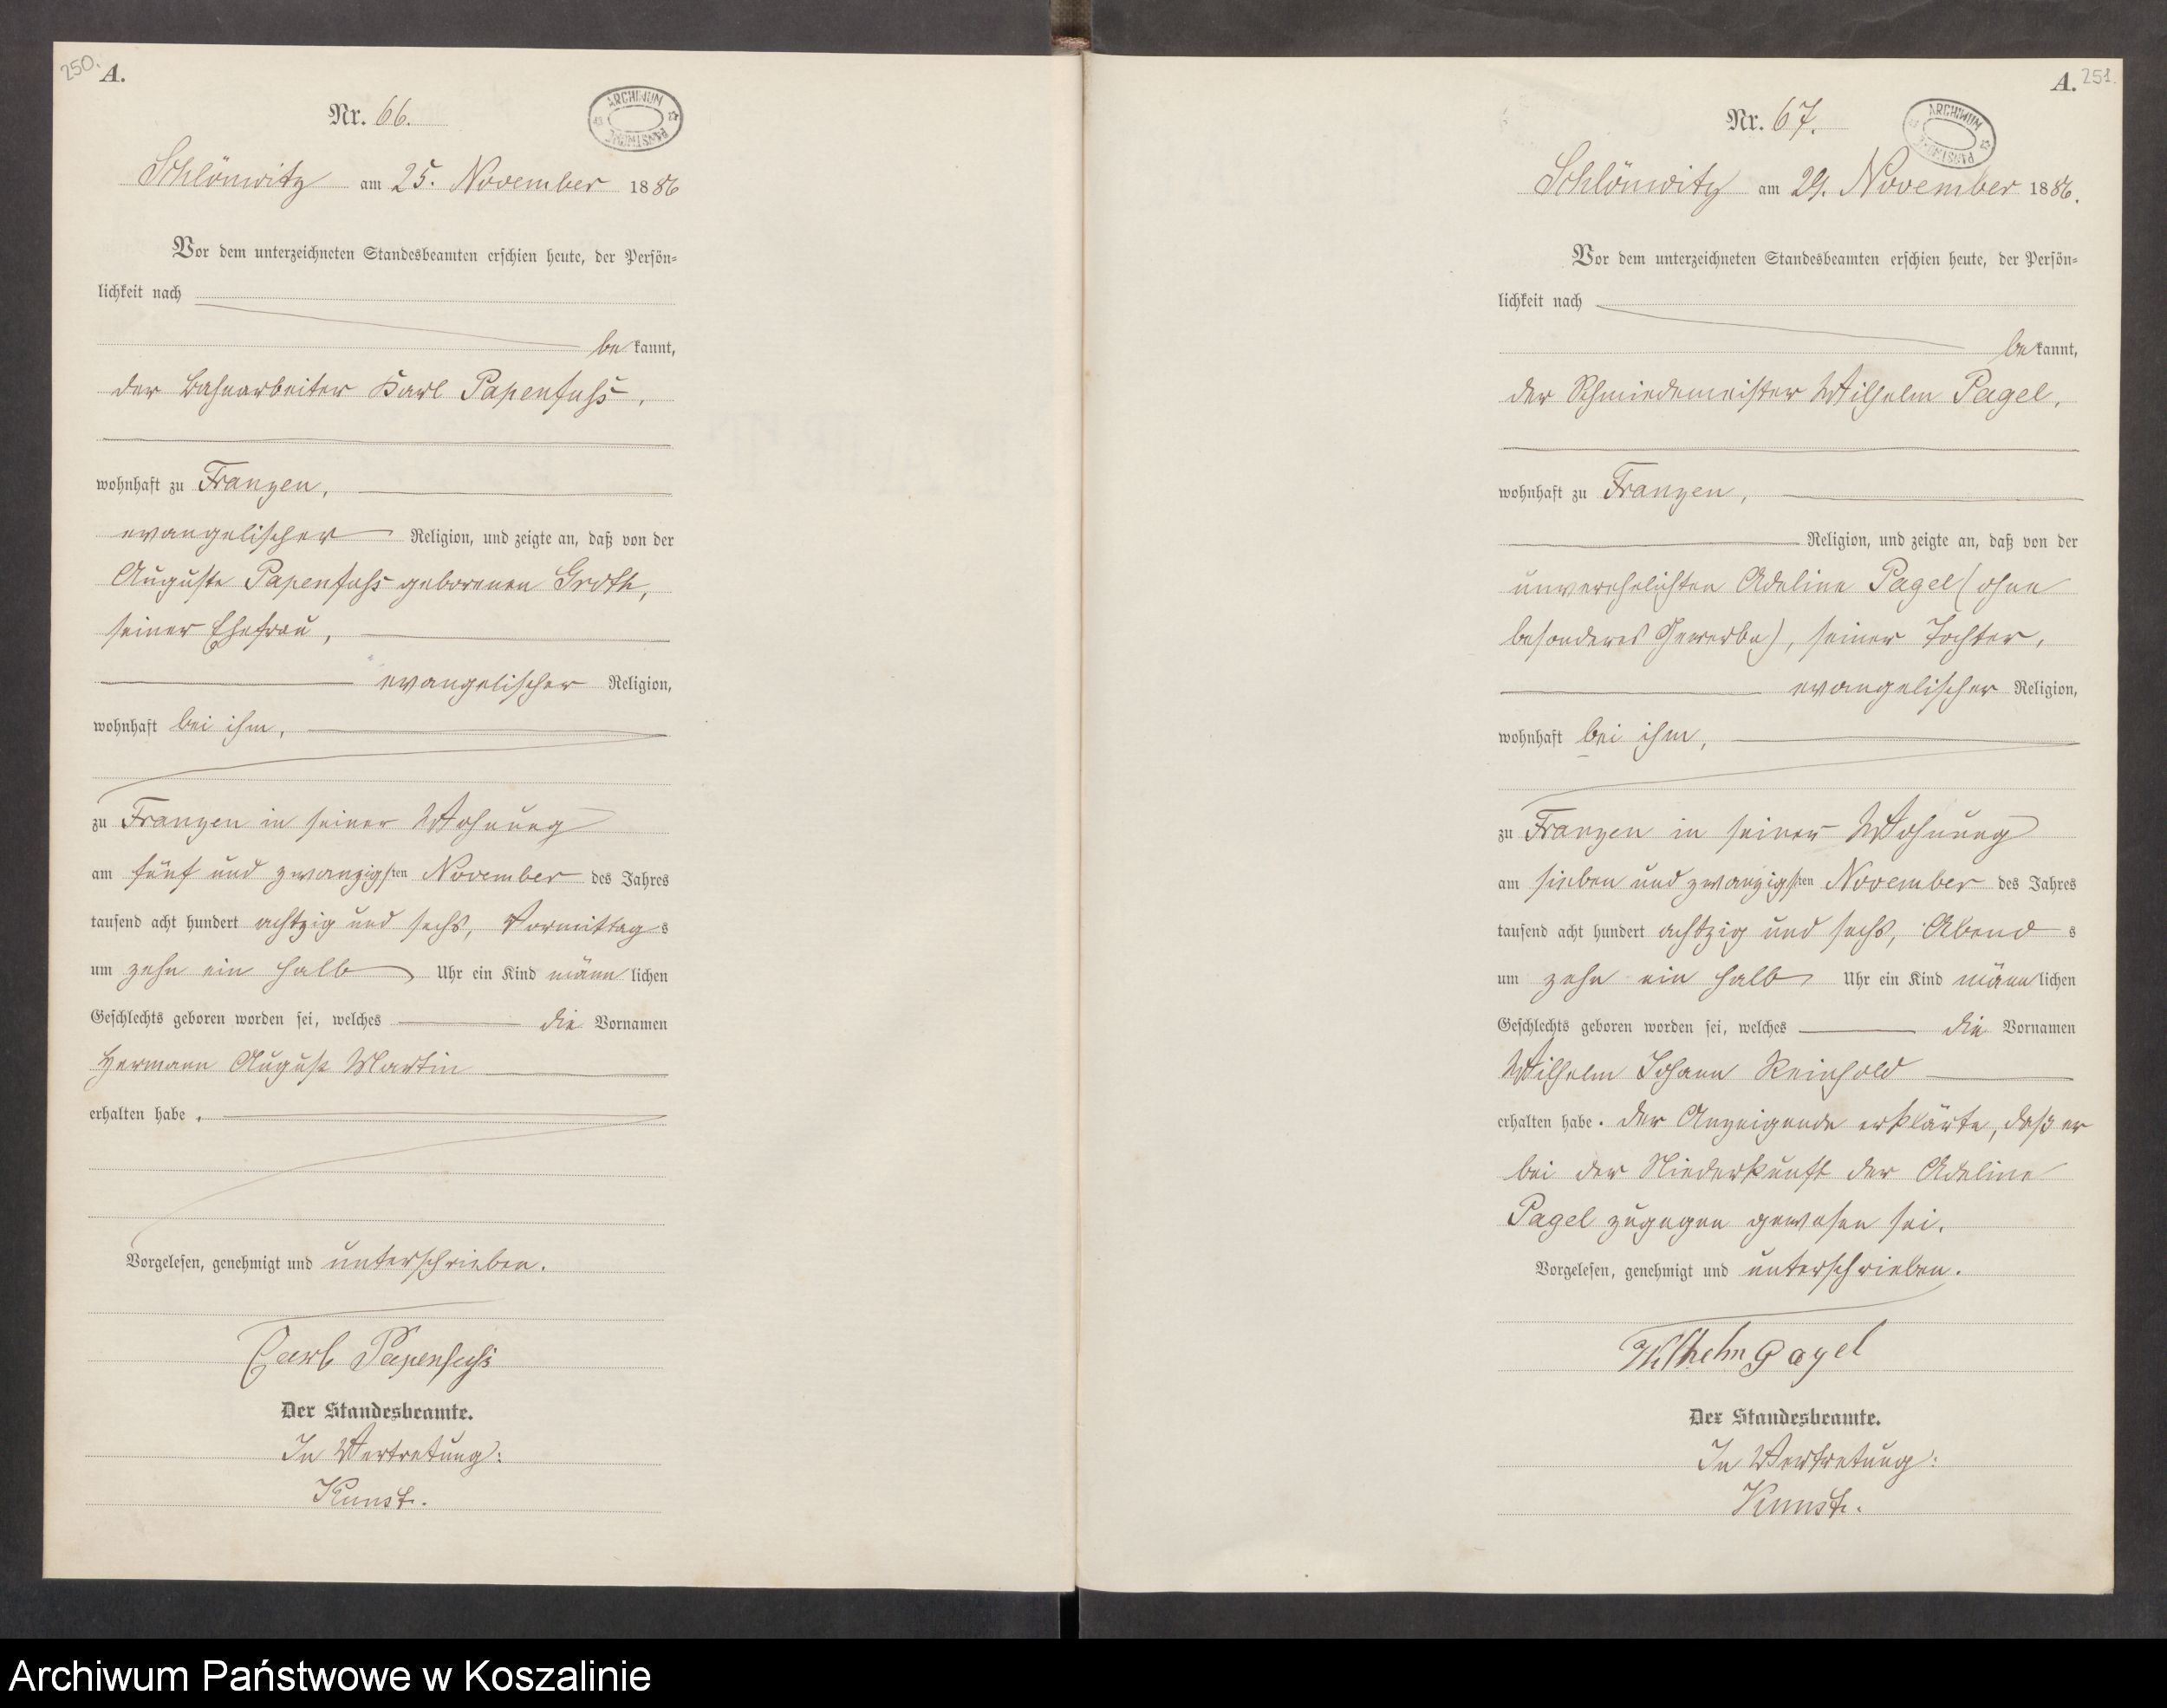 250.
A.
Nr. 66.
ARCHIWUM PAŃSTWOWE
Schlönwitz am 25. November 1886
Vor dem unterzeichneten Standesbeamten erschien heute, der Persön-
lichkeit nach
bekannt,
der Bahnarbeiter Karl Papenfuhs,
wohnhaft zu Franzen,
evangelischer Religion, und zeigte an, daß von der
Auguste Papenfuhs geborenen Groth,
seiner Ehefrau,
evangelischer Religion,
wohnhaft bei ihm,
zu Franzen in seiner Wohnung
am fünf und zwanzigsten November des Jahres
tausend acht hundert achtzig und sechs, Vormittags
um zehn ein halb Uhr ein Kind männlichen
Geschlechts geboren worden sei, welches die Vornamen
Hermann August Martin
erhalten habe.
Vorgelesen, genehmigt und unterschrieben.
Carl Papenfuhs
Der Standesbeamte.
In Vertretung:
Kunst.
A. 251.
Nr. 67.
ARCHIWUM PAŃSTWOWE
Schlönwitz am 29. November 1886.
Vor dem unterzeichneten Standesbeamten erschien heute, der Persön-
lichkeit nach
bekannt,
der Schmiedemeister Wilhelm Pagel,
wohnhaft zu Franzen,
Religion, und zeigte an, daß von der
unverehelichten Adeline Pagel (ohne
besonderes Gewerbe), seiner Tochter,
evangelischer Religion,
wohnhaft bei ihm,
zu Franzen in seiner Wohnung
am sieben und zwanzigsten November des Jahres
tausend acht hundert achtzig und sechs, Abends
um zehn ein halb Uhr ein Kind männlichen
Geschlechts geboren worden sei, welches die Vornamen
Wilhelm Johann Reinhold
erhalten habe. Der Anzeigende erklärte, daß er
bei der Niederkunft der Adeline
Pagel zugegen gewesen sei.
Vorgelesen, genehmigt und unterschrieben.
Wilhelm Pagel
Der Standesbeamte.
In Vertretung:
Kunst.
Archiwum Państwowe w Koszalinie